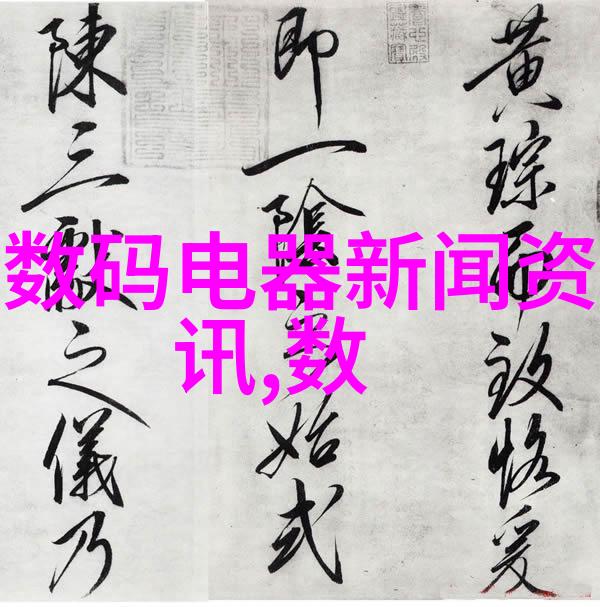 黄琮致恪爰
即一陰始式
陳三獻之儀乃
数码电器新闻资
讯,数